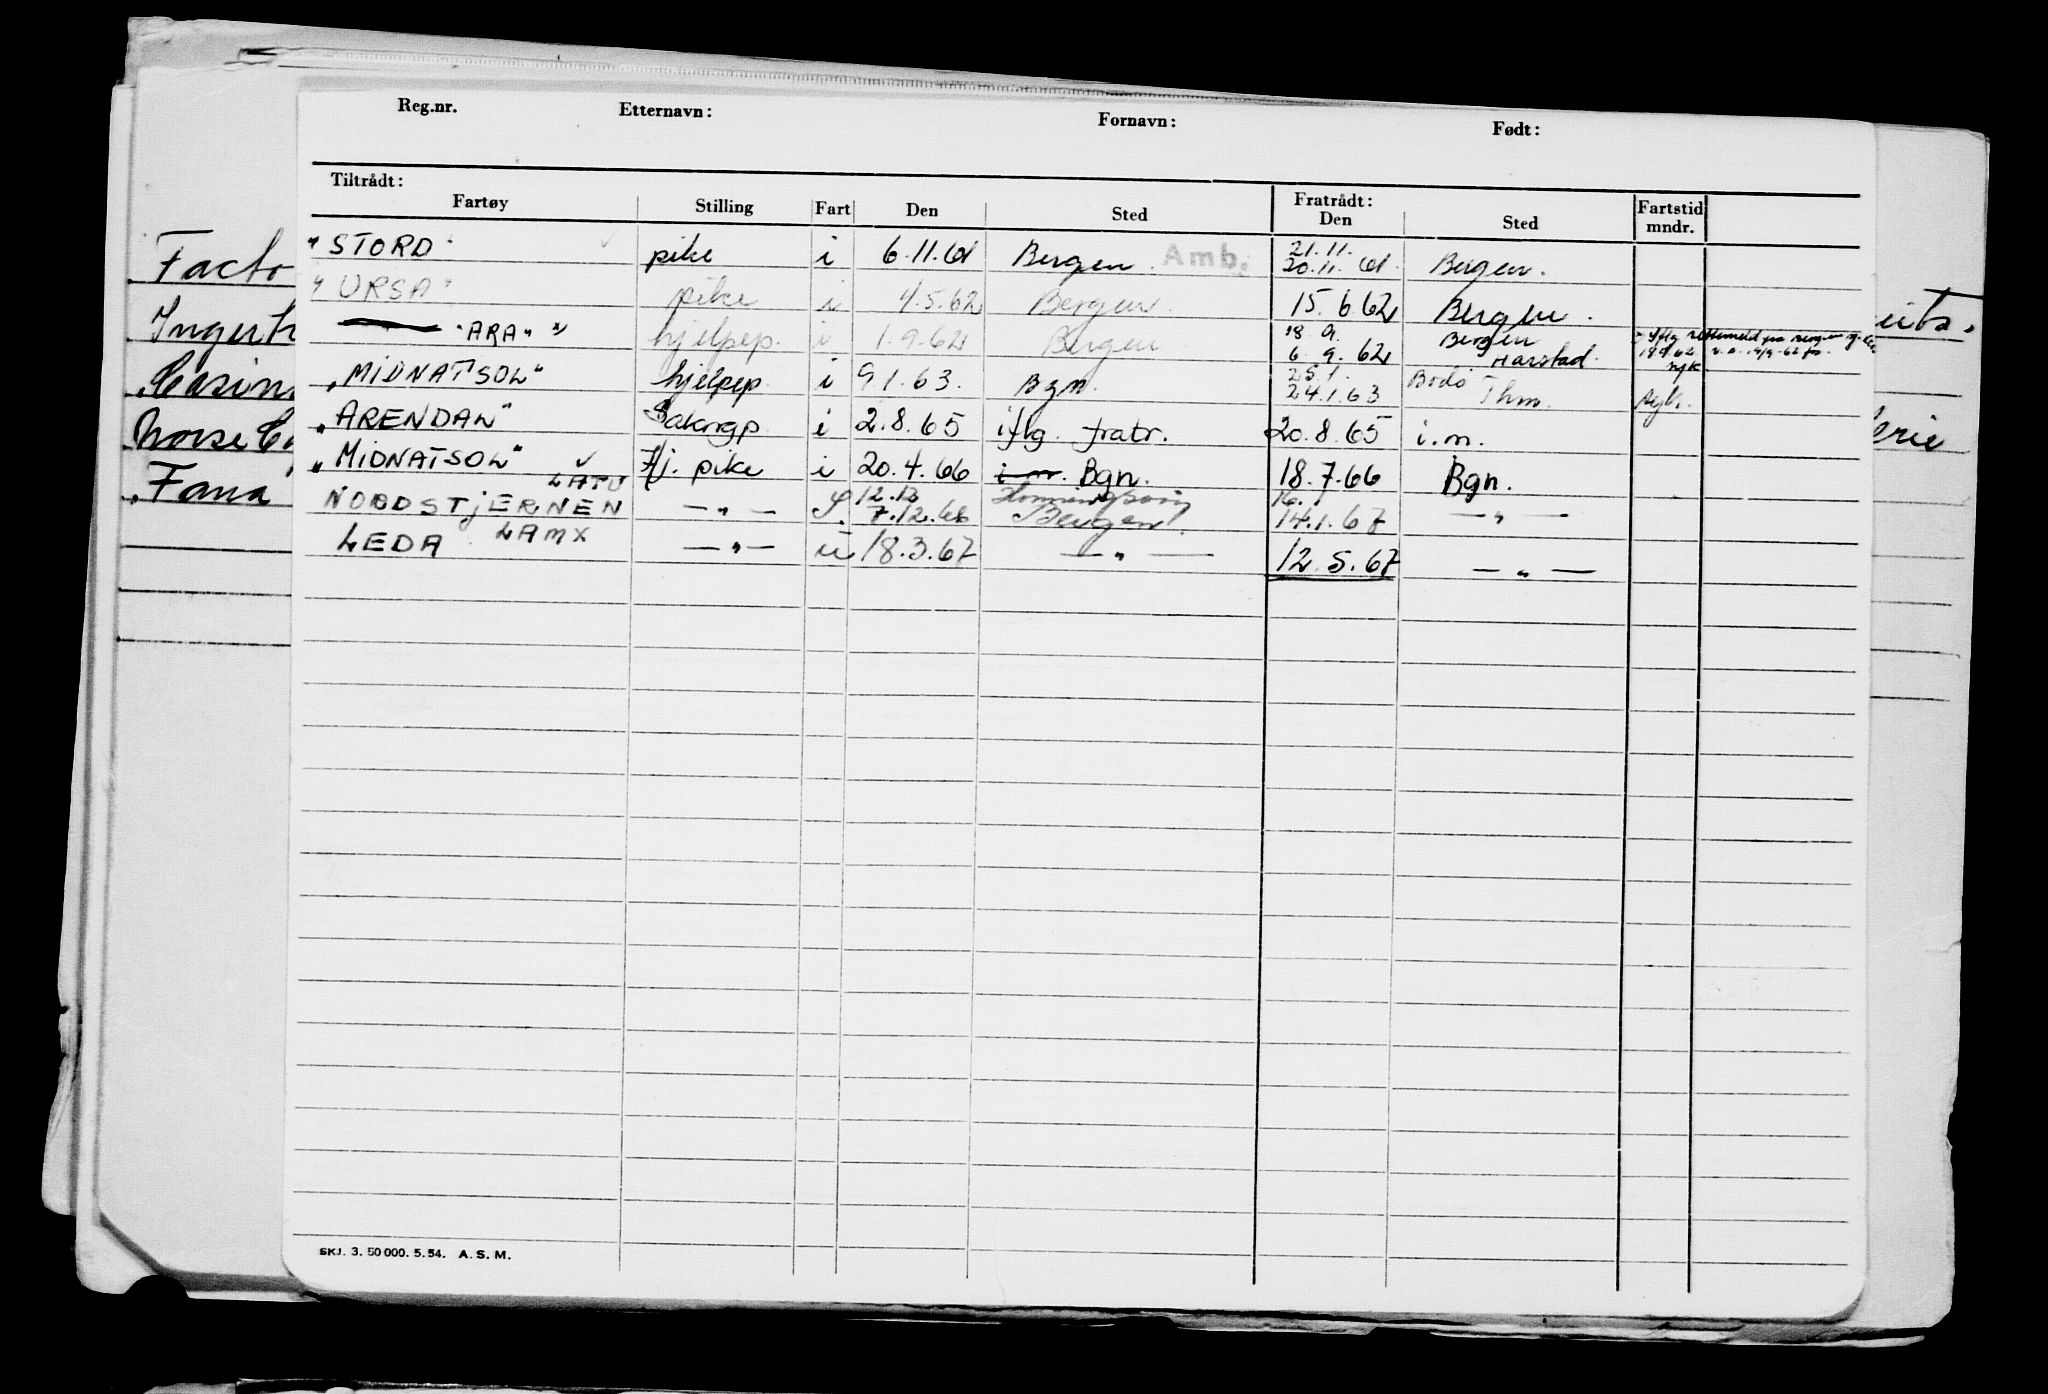 Reg.nr. Etternavn: Fornavn: Født:
Tiltrådt: Fratrådt:
Fartøy Stilling Fart Den Sted Den Sted Fartstid mndr.
"STORD" pike i 6.11.61 Bergen. Amb. 21.11. 20.11.61. Bergen.
"URSA" pike i 4.5.62 Bergen. 15.6.62 Bergen.
"ARA" x) hjelpep. i 1.9.62 Bergen 18.9. 6.9.62 Bergen Harstad.
"MIDNATSOL" hjelpep. i 9.1.63. Bgn. 25.1. 24.1.63 Bodø Thm. syk.
"ARENDAL" Sakrgp. i 2.8.65 iflg. fratr. 20.8.65 i.m.
"MIDNATSOL" Hj. pike i 20.4.66 i m. Bgn. 18.7.66 Bgn.
LATU
NORDSTJERNEN — " — 12.12 7.12.66 Honningsvåg Bergen 16. 14.1.67 — " —
LEDA LAMX — " — u 18.3.67 — " — 12.5.67 — " —
SKJ. 3. 50 000. 5. 54. A. S. M.
Facto
Ingert
Norse
Fana